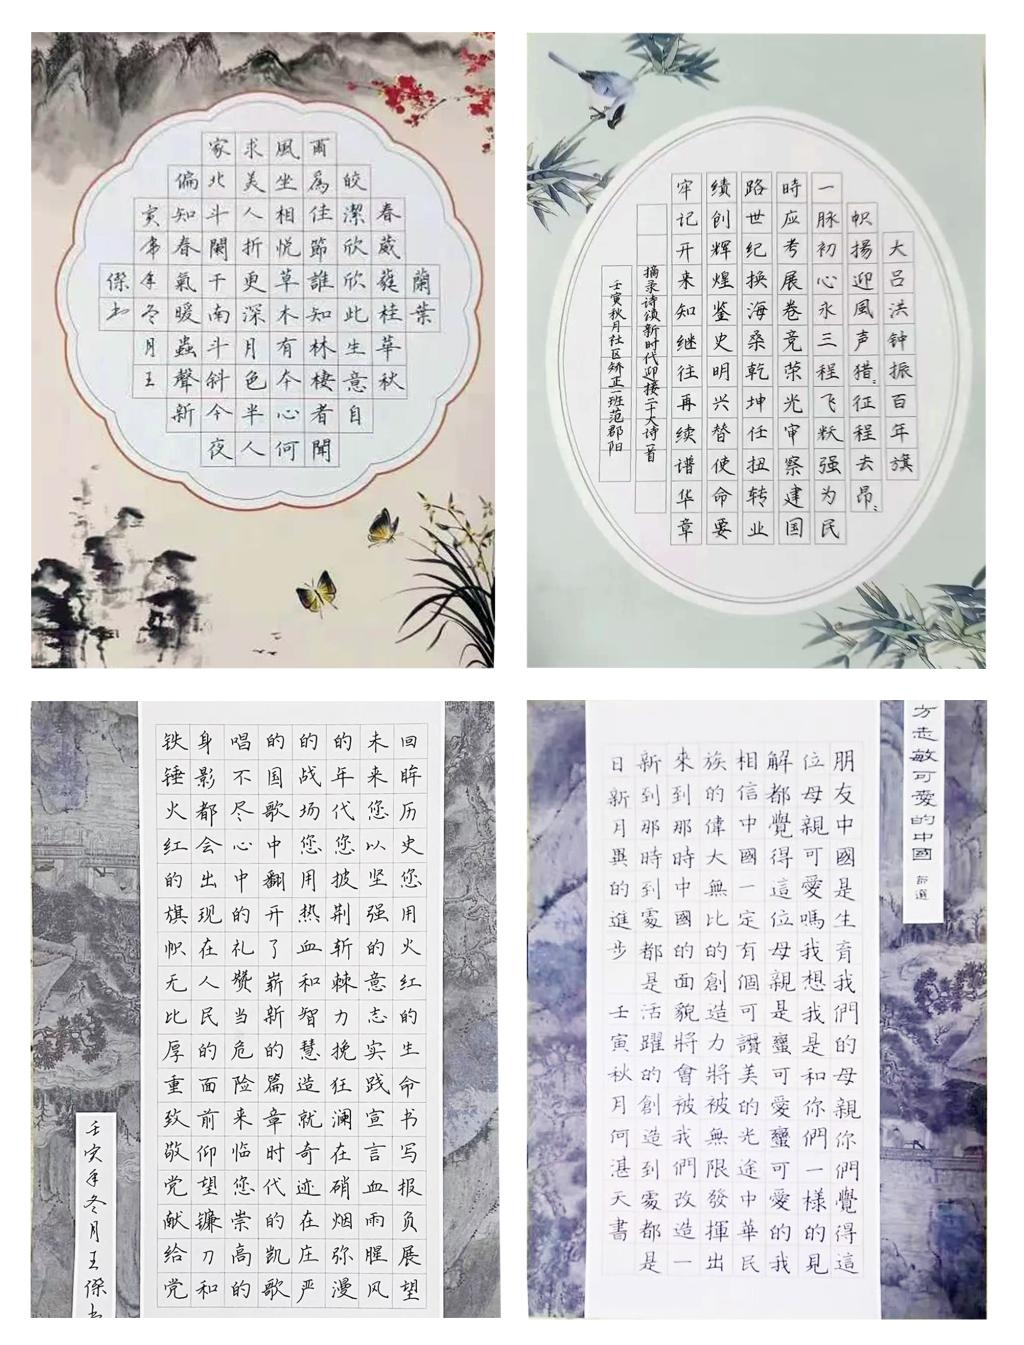 蘭葉
春葳蕤桂華秋
皎潔欣欣此生意自
爾為佳節誰知林棲者聞
風坐相悅草木有本心何
求美人折更深月色半人
家北斗闌干南斗斜今夜
偏知春氣暖蟲聲新
寅年冬月王
傑书
大吕洪钟振百年旗
帜揚迎風声猎〻征程去昂〻
一脉初心永三程飞跃强为民
時应考展卷竞荣光审察建国
路世纪换海桑乾坤任扭转业
績创辉煌鉴史明兴替使命要
牢记开来知继往再续谱华章
摘录诗颂新时代迎接二十大诗一首
壬寅秋月社区矫正一班范郡阳
回眸历史您用火红的生命书写报负展望
未来您以坚强的意志实践宣言血雨腥风
的年代您披荆斩棘力挽狂澜在硝烟弥漫
的战场您用热血和智慧造就奇迹在庄严
的国歌中翻开了崭新的篇章时代的凯歌
唱不尽心中的礼赞当危险来临您崇高的
身影都会出现在人民的面前仰望镰刀和
铁锤火红的旗帜无比厚重致敬党献给党
壬寅年冬月王傑书
方志敏可愛的中國 节選
朋友中國是生育我們的母親你們覺得這
位母親可愛嗎我想我是和你們一樣的見
解都覺得這位母親是蠻可愛蠻可愛的我
相信中國一定有個可讚美的光途中華民
族的偉大無比的創造力將被無限發揮出
來到那時中國的面貌將會被我們改造一
新到那時到處都是活躍的創造到處都是
日新月異的進步 壬寅秋月何湛天書